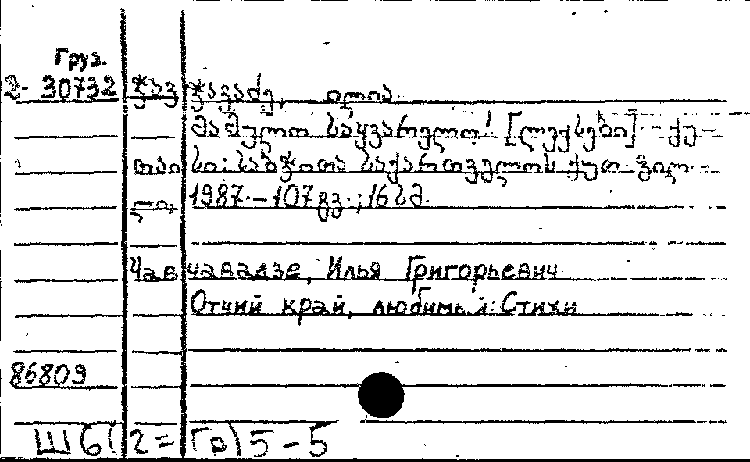 Груз.
2-30732 ჭავჭავაძე, ილია
მამულო საყვარელო! [ლექსები] - ქუ-
თაისი: საბჭოთა საქართველოს ქუთ. ფილ-
ლი, 1987. - 107 გვ.; 16 სმ.
Чавчавадзе, Илья Григорьевич
Отчий край, любимый: Стихи
86809
Ш6(2=Гр)5-5